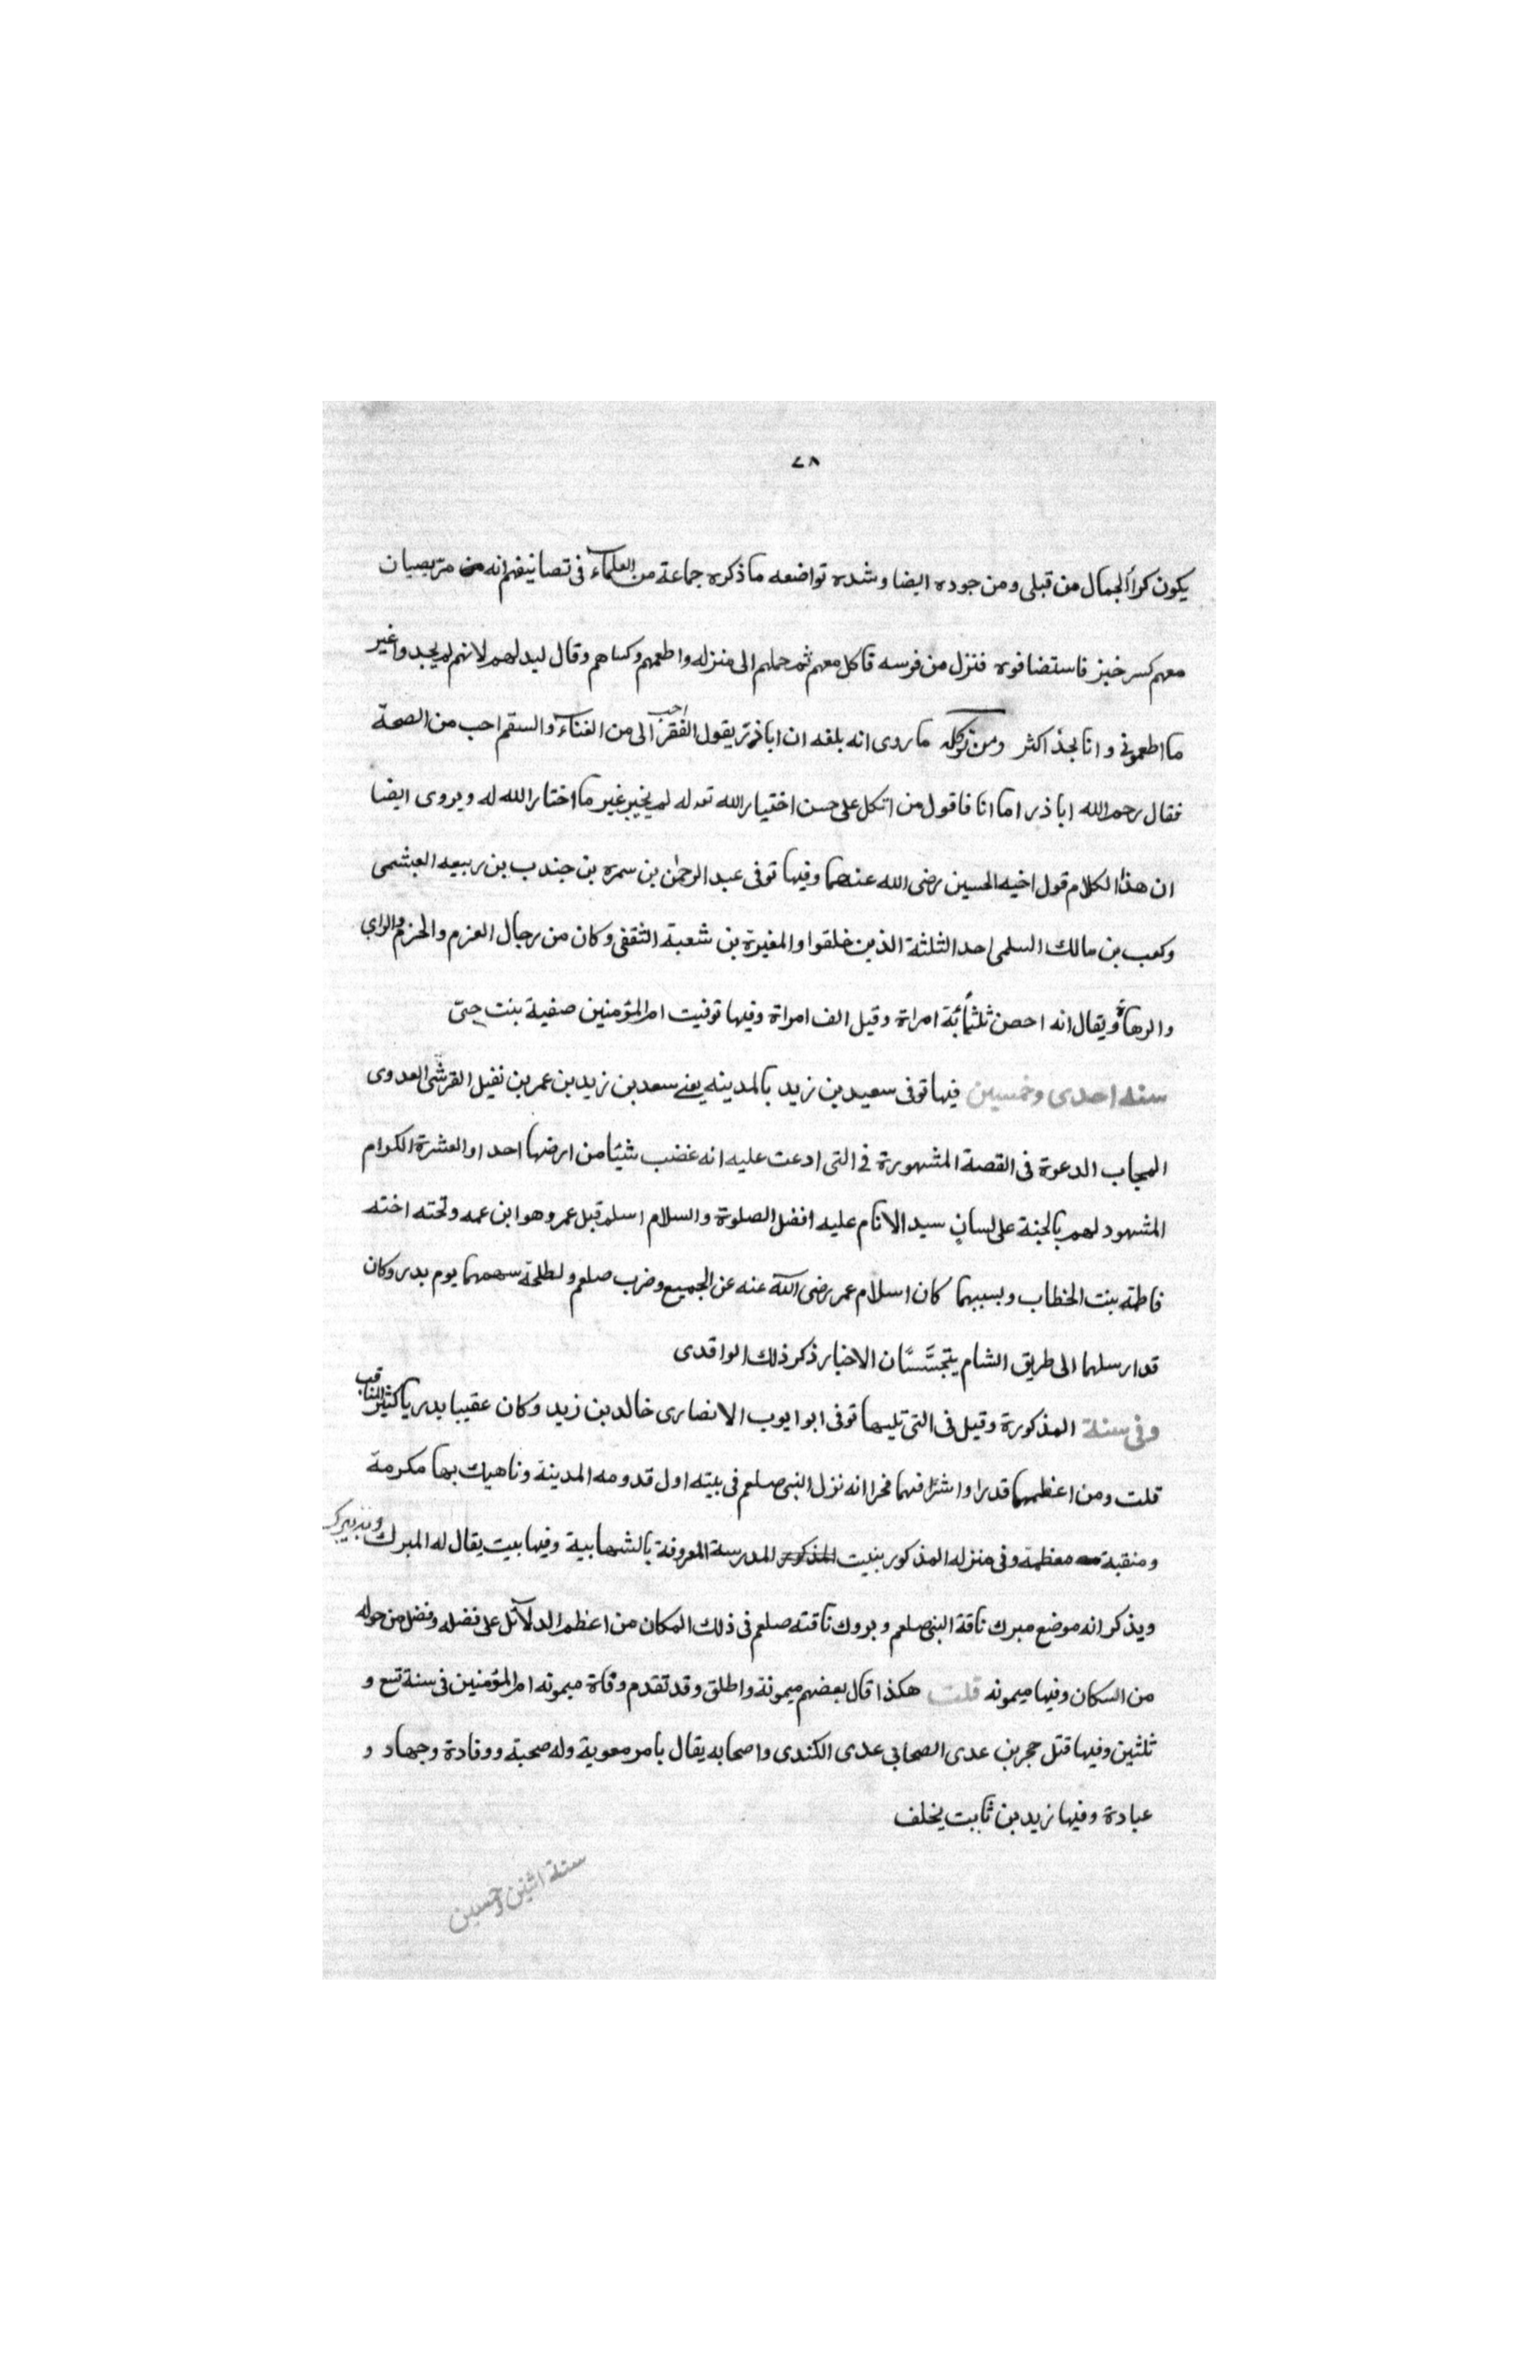 ٧٨
يكون كرا الجمال من قبلى ومن جوده ايضا وشده تواضعه ما ذكره جماعة من العلماء فى تصانيفهم انه مر بصبيان
معهم كسر خبز فاستضافوه فنزل من فرسه فاكل معهم ثم حملهم الى منزله واطعمهم وكساهم وقال ليد لهم لانهم لم يجدوا غير
ما اطعمونى وانا نجد اكثر ومن توكله ما روى انه بلغه ان اباذر يقول الفقر احب الى من الغناء والسقم احب من الصحة
فقال رحم الله اباذر اما انا فاقول من اتكل على حسن اختيار الله تعه له لم يخير غير ما اختار الله له ويروى ايضا
ان هذا الكلام قول اخيه الحسين رضى الله عنهما وفيها توفى عبد الرحمن بن سمره بن جندب بن ربيعه العبشمى
وكعب بن مالك السلمى احد الثلثة الذين خلفوا والمغيرة بن شعبة الثقفى وكان من رجال العزم والحزم والراى
والدهاء ويقال انه احصن ثلثمائة امراة وقيل الف امراة وفيها توفيت ام المؤمنين صفية بنت حيّ
سنه احدى وخمسين فيها توفى سعيد بن زيد بالمدينه يعنى سعد بن زيد بن عمر بن نفيل القرشى العدوى
المجاب الدعوة فى القصة المشهورة فى التى ادعت عليه انه غضب شيئا من ارضها احد او العشرة الكرام
المشهود لهم بالجنة على لسان سيد الانام عليه افضل الصلوة والسلام اسلم قبل عمر وهو ابن عمه وتحته اخته
فاطمه بنت الخطاب وبسببهما كان اسلام عمر رضى الله عنه عن الجميع وضرب صلعم ولطلحة سهمهما يوم بدر وكان
قد ارسلهما الى طريق الشام يتجسّسان الاخبار ذكر ذلك الواقدى
وفى سنة المذكورة وقيل فى التى تليها توفى ابو ايوب الانصارى خالد بن زيد وكان عقيبا بدريا كثير المناقب
قلت ومن اعظمها قدرا واشرافهما فخرا انه نزل النبى صلعم فى بيته اول قدومه المدينة وناهيك بها مكرمة
ومنقبة معظمة وفى منزله المذكور بنيت المذكور للمدرسة المعروفة بالشهابية وفيها بيت يقال له المبرك
ويذكر انه موضع مبرك ناقة النبى صلعم وبروك ناقته صلعم فى ذلك المكان من اعظم الدلآئل على فضله وفضل من حوله
من السكان وفيها ميمونه قلت هكذا قال بعضهم ميمونة واطلق وقد تقدم وفاة ميمونه ام المؤمنين فى سنة تسع و
ثلثين وفيها قتل حجر بن عدى الصحابى عدى الكندى واصحابه يقال بامر معوية وله صحبة ووفادة وجهاد و
عبادة وفيها زيد بن ثابت يخلف
سنة اثنين وخمسين